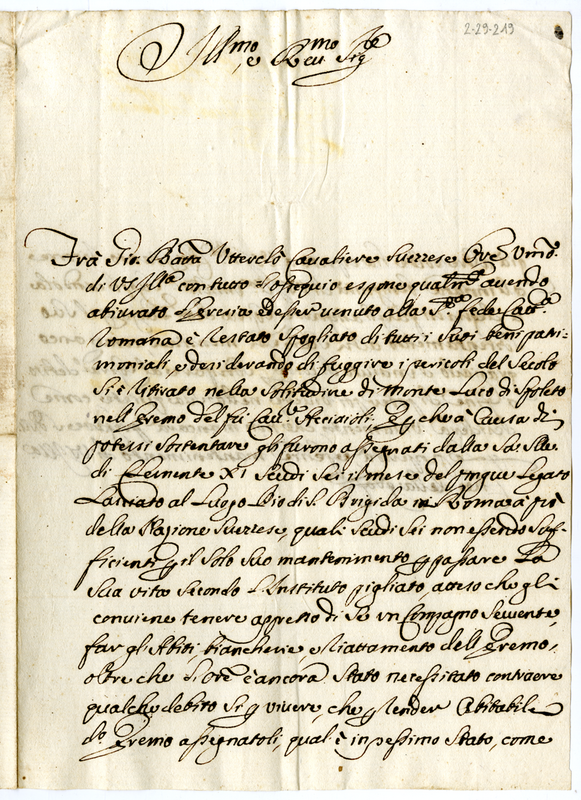 2-29-219
Ill.mo e Rev.mo Sig.re
Frà Gio: Batta Utterclò Cavaliere Svezzese Ore Umo:
di VS Ill.ma con tutto l'ossequio espone qualm.te avendo
abiurato l'Eresia ed esser venuto alla S.ta fede Catt.ca
Romana è restato spogliato di tutti i suoi beni patri-
moniali, e desiderando di fuggire i pericoli del Secolo
si è ritirato nella Solitudine di Monte Luco di Spoleto
nell'Eremo del fù Cau.re Acciaioli, e perche à Causa di
potersi sostentare gli furono assegnati dalla Sa: Me:
di Clemente XI Scudi Sei il mese del pingue Legato
Lasciato al Luogo Pio di S. Brigida in Roma à prò
della Nazione Svezzese, quali scudi sei non essendo suf-
ficienti per il solo suo mantenimento per passare la
sua vita secondo l'Instituto pigliato, atteso che gli
conviene tenere appresso di se un Compagno servente,
far gli Abiti, biancherie, e riattamento dell'Eremo,
oltre che l'Ore è ancora stato necessitato contraere
qualche debito si per vivere, che per render abitabile
d.o Eremo assegnatoli, qual'è in pessimo stato, come